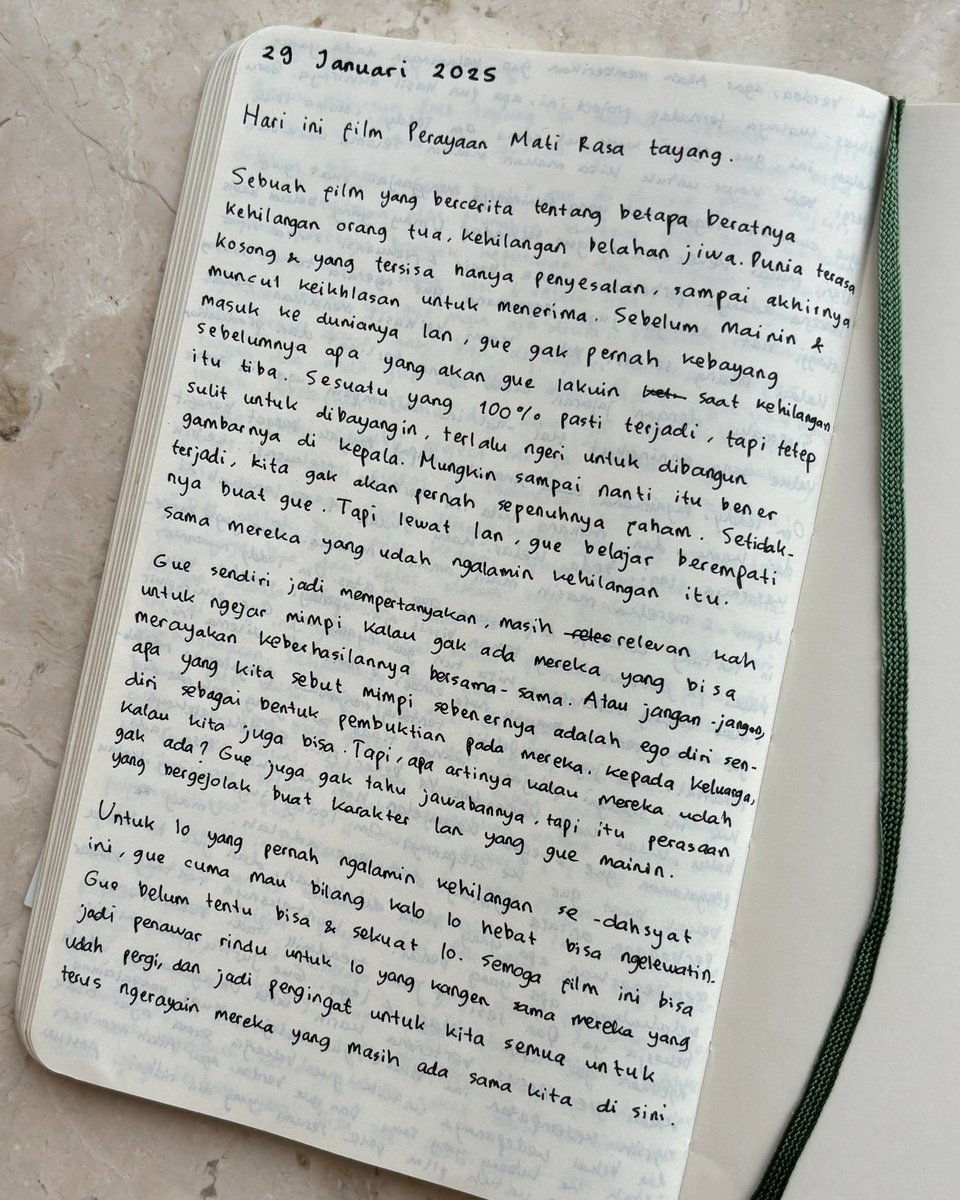 29 Januari 2025
Hari ini film Perayaan Mati Rasa tayang.
Sebuah film yang bercerita tentang betapa beratnya
kehilangan orang tua, kehilangan belahan jiwa. Dunia terasa
kosong & yang tersisa hanya penyesalan, sampai akhirnya
muncul keikhlasan untuk menerima. Sebelum mainin &
masuk ke dunianya Ian, gue gak pernah kebayang
sebelumnya apa yang akan gue lakuin saat kehilangan
itu tiba. Sesuatu yang 100% pasti terjadi, tapi tetep
sulit untuk dibayangin, terlalu ngeri untuk dibangun
gambarnya di kepala. Mungkin sampai nanti itu bener
terjadi, kita gak akan pernah sepenuhnya faham. Setidak-
nya buat gue. Tapi lewat Ian, gue belajar berempati
sama mereka yang udah ngalamin kehilangan itu.
Gue sendiri jadi mempertanyakan, masih relevan kah
untuk ngejar mimpi kalau gak ada mereka yang bisa
merayakan keberhasilannya bersama-sama. Atau jangan-jangan,
apa yang kita sebut mimpi sebenernya adalah ego diri sen-
diri sebagai bentuk pembuktian pada mereka, kepada keluarga,
kalau kita juga bisa. Tapi, apa artinya kalau mereka udah
gak ada? Gue juga gak tahu jawabannya, tapi itu perasaan
yang bergejolak buat karakter Ian yang gue mainin.
Untuk lo yang pernah ngalamin kehilangan se-dahsyat
ini, gue cuma mau bilang kalo lo hebat bisa ngelewatin.
Gue belum tentu bisa & sekuat lo. Semoga film ini bisa
jadi penawar rindu untuk lo yang kangen sama mereka yang
udah pergi, dan jadi pengingat untuk kita semua untuk
terus ngerayain mereka yang masih ada sama kita di sini.